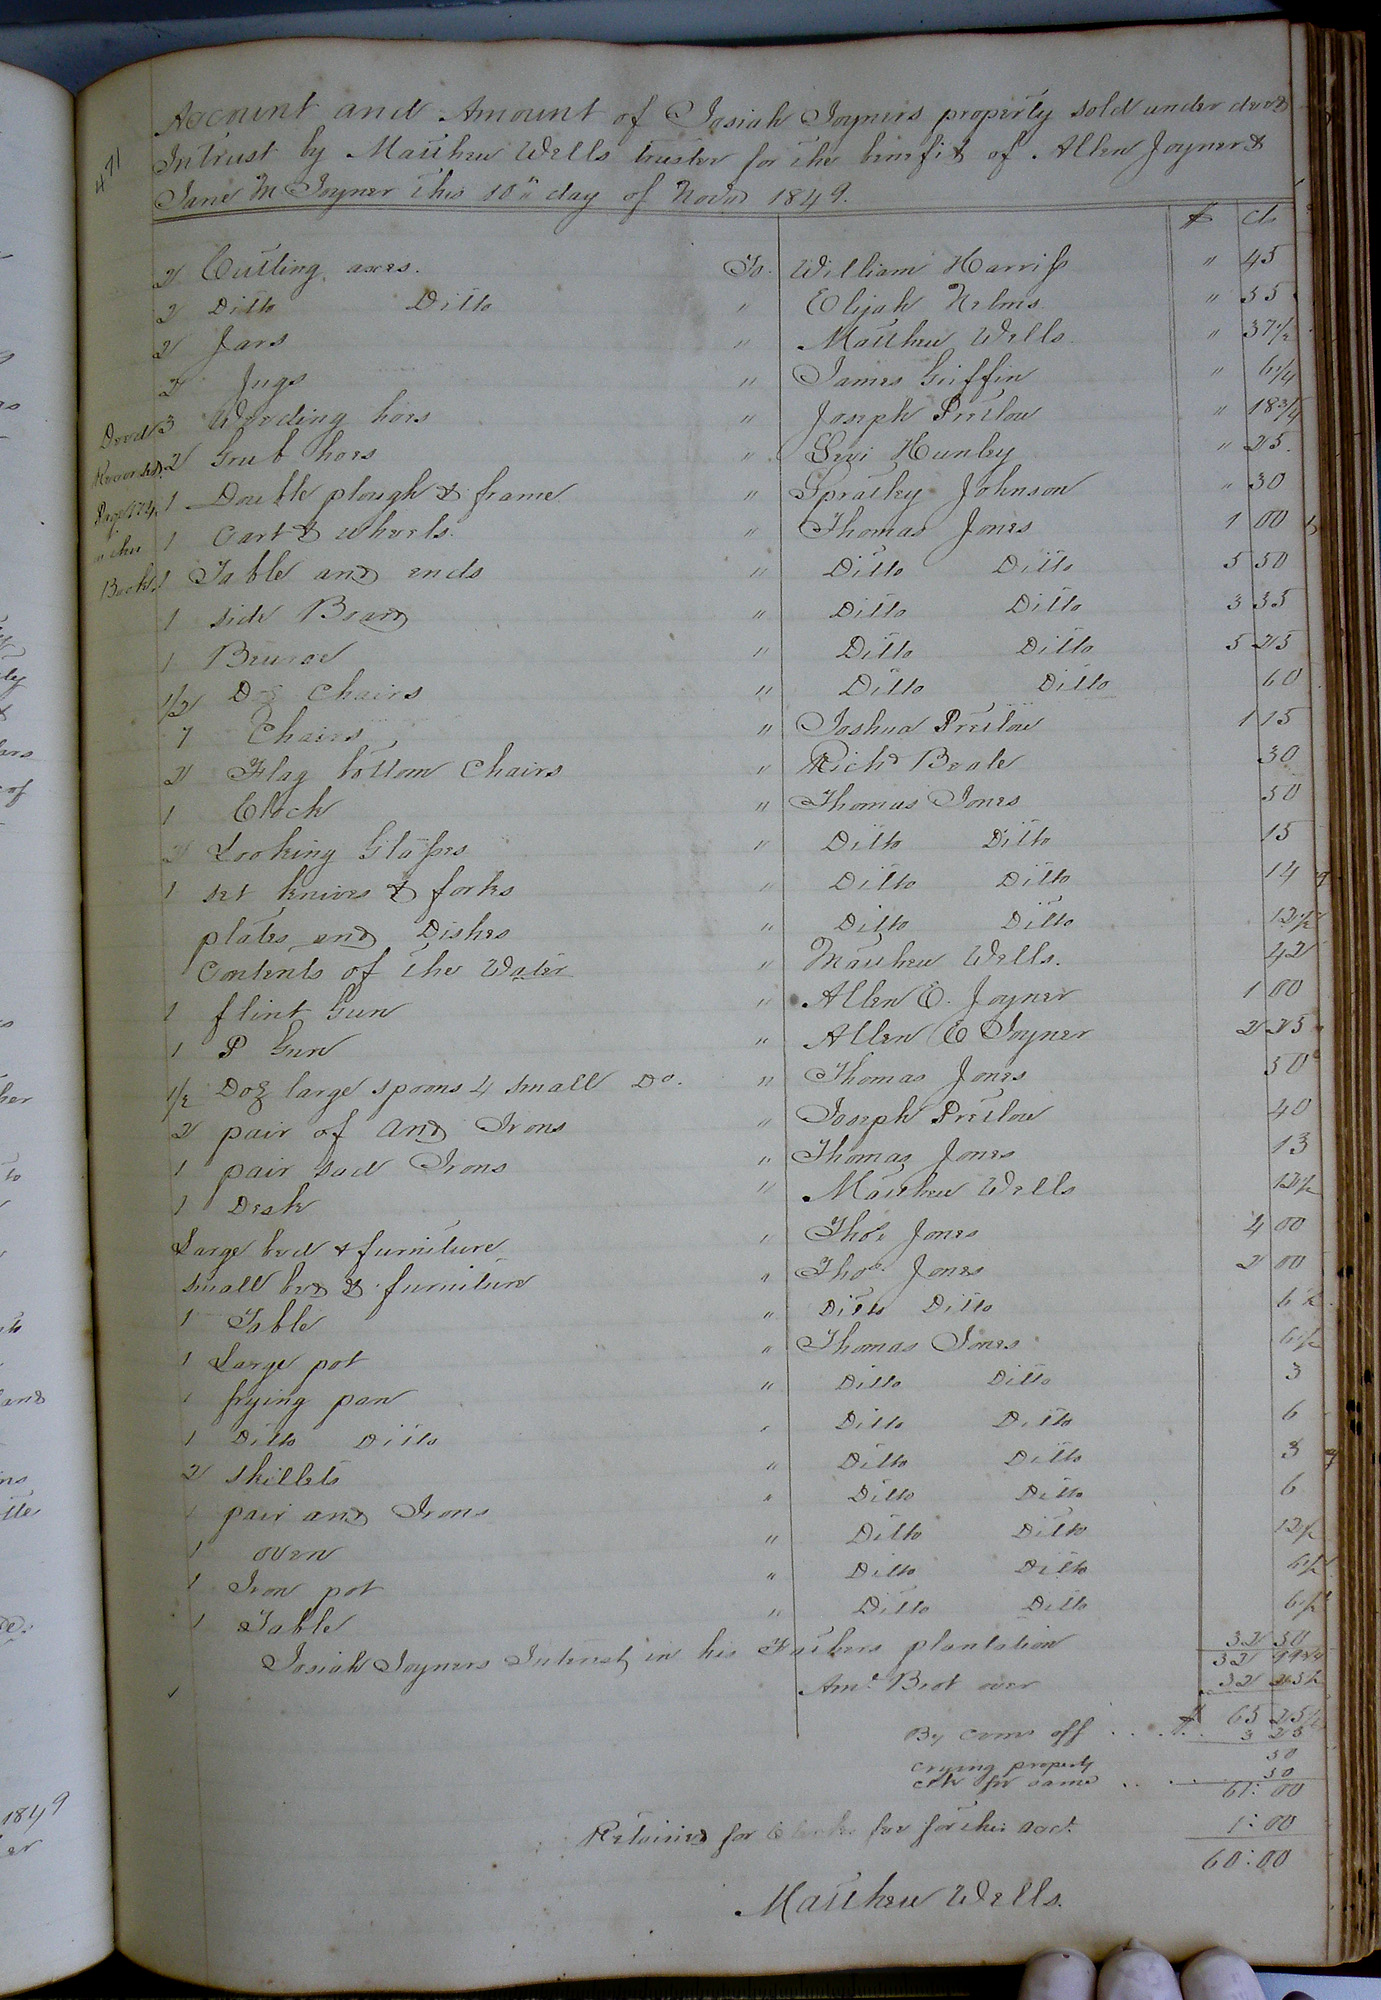 471
Account and Amount of Josiah Joyners property sold under deed
Intrust by Matthew Wells trustee for the benefit of Allen Joyner &
Jane M Joyner this 10" day of Novr 1849.
$ cts
2 Cutting axes. To William Harriss " 45
2 Ditto Ditto " Elijah Helms " 55
2 Jars " Matthew Wells " 37 1/2
2 Jugs " James Griffin " 6 1/4
3 Weeding hoes " Joseph Pretlow " 18 3/4
2 Grub hoes " Levi Hunley " 25
1 Double plough & frame " Spratley Johnson " 30
1 Cart & wheels " Thomas Jones 1 00
1 Table and ends " Ditto Ditto 5 50
1 side Board " Ditto Ditto 3 35
1 Beuroe " Ditto Ditto 5 25
1/2 Doz Chairs " Ditto Ditto 60
7 Chairs " Joshua Pretlow 1 15
2 Flag bottom Chairs " Richd Beale 30
1 Clock " Thomas Jones 50
2 Looking Glasses " Ditto Ditto 15
1 set knives & forks " Ditto Ditto 14
plates and Dishes " Ditto Ditto 12 1/2
Contents of the Water " Matthew Wells. 42
1 flint Gun " Allen E. Joyner 1 00
1 P Gun " Allen E Joyner 2 25
1/2 Doz large spoons 4 small Do. " Thomas Jones 50
2 pair of And Irons " Joseph Pretlow 40
1 pair sad Irons " Thomas Jones 13
1 Desk " Matthew Wells 12 1/2
Large bed & furniture " Thos Jones 4 00
small bed & furniture " Thos Jones 2 00
1 Table " Ditto Ditto 6 1/2
1 Large pot " Thomas Jones 6 1/2
1 frying pan " Ditto Ditto 3
1 Ditto Ditto " Ditto Ditto 6
2 skillets " Ditto Ditto 3
1 pair and Irons " Ditto Ditto 6
1 oven " Ditto Ditto 12 1/2
1 Iron pot " Ditto Ditto 6 1/2
1 Table " Ditto Ditto 6 1/2
Josiah Joyners Interest in his Fathers plantation 32 50
Amt Brot over 32 25 1/2
$ 65 25 1/2
By coms off 3 25
crying property 50
clk for same 50
61:00
Retained for Clerks fee for this acct. 1:00
60:00
Matthew Wells.
Deed
Recorded
Page 174
in this
Book
1849